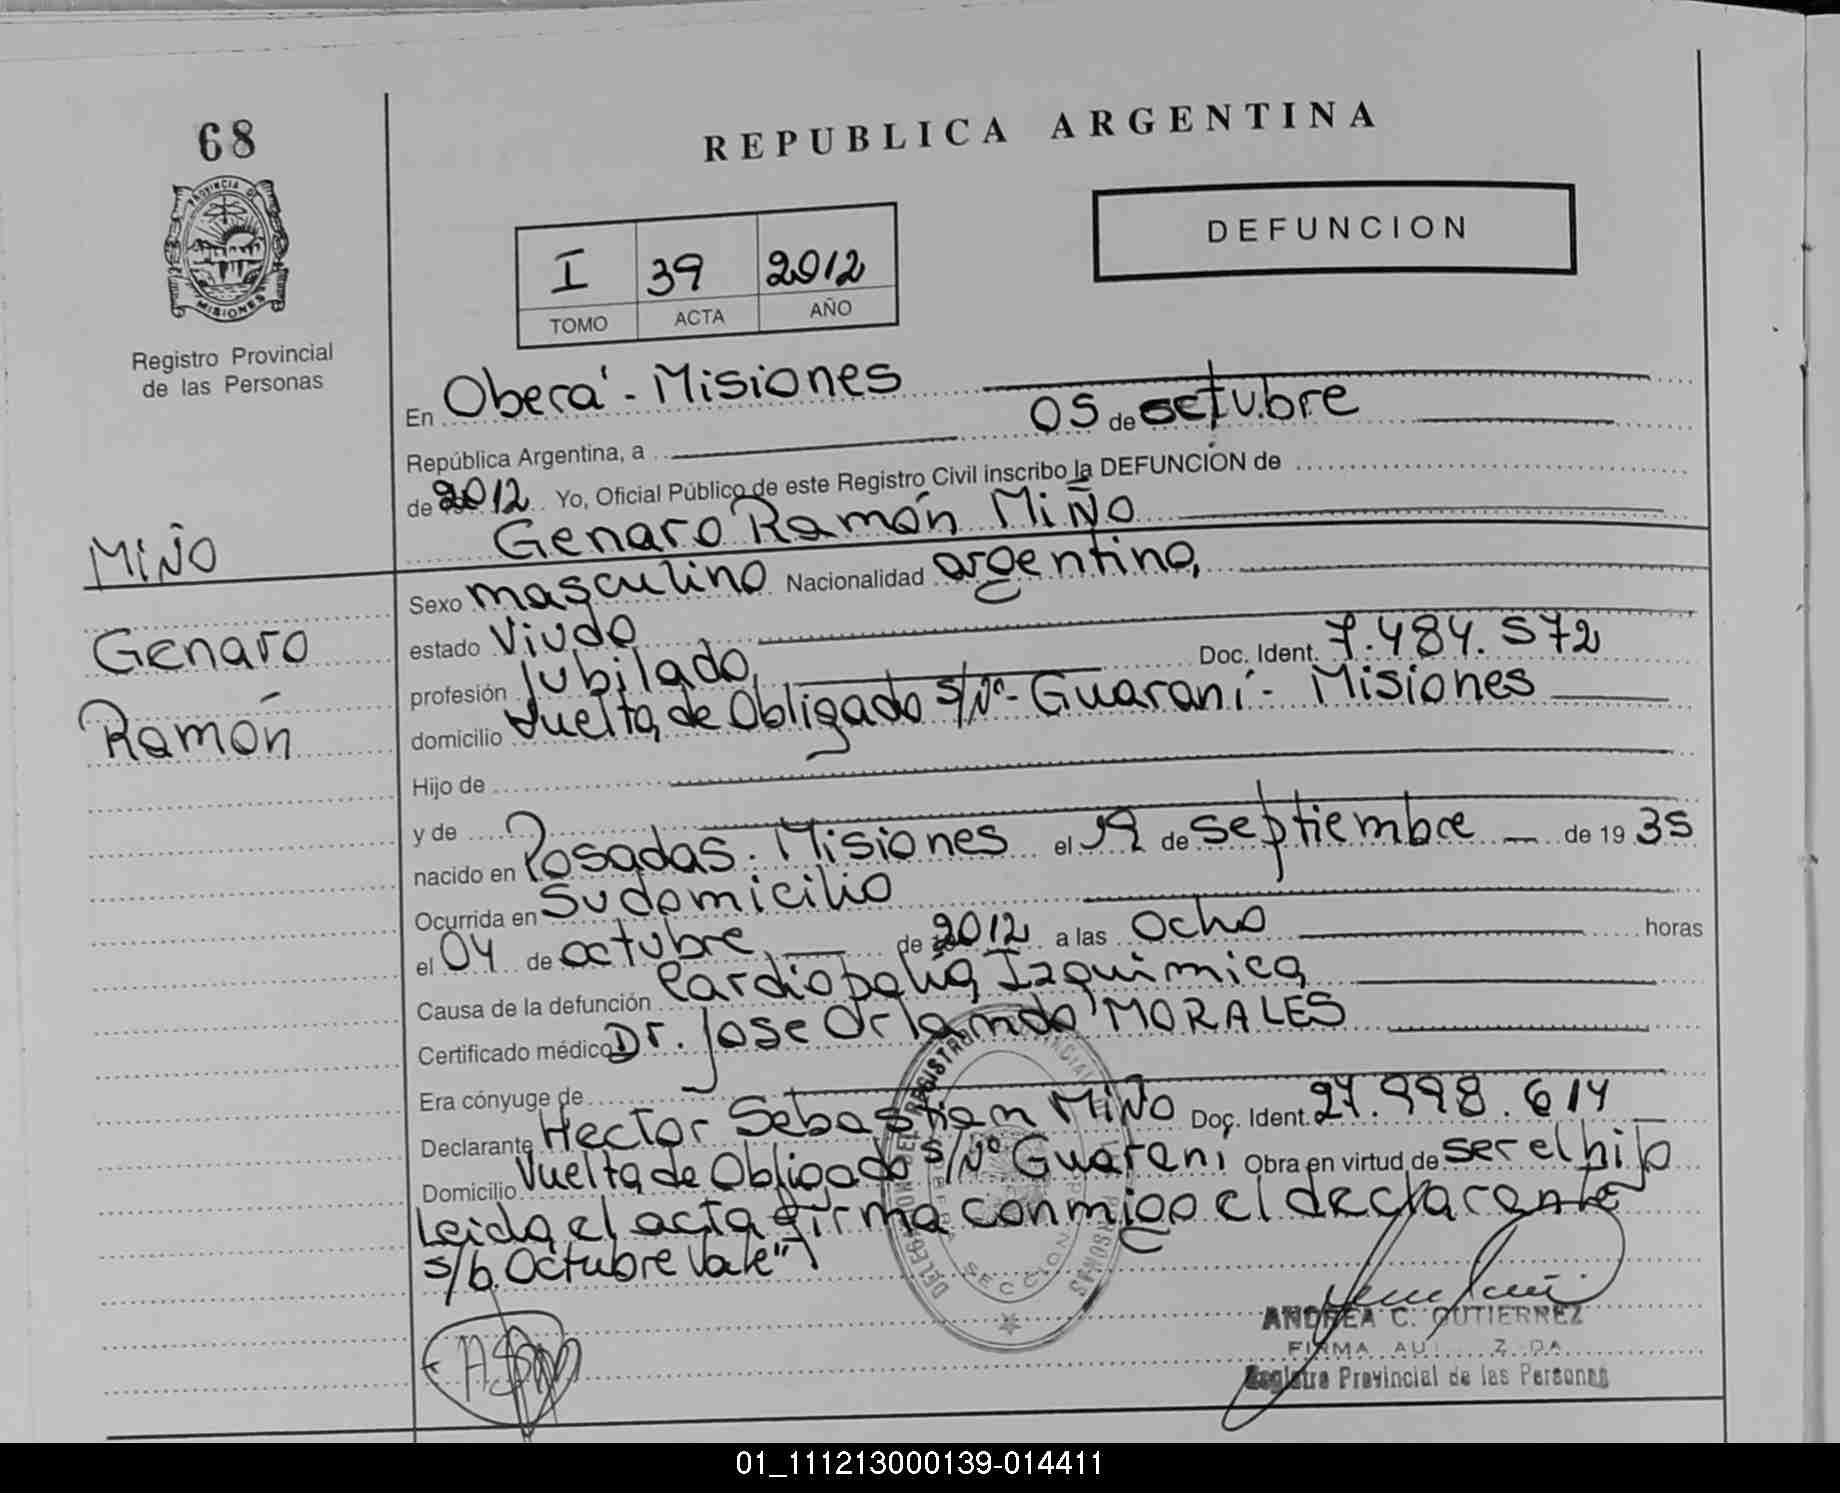 68
REPUBLICA ARGENTINA
PROVINCIA DE
MISIONES
Registro Provincial
de las Personas
DEFUNCION
I 39 2012
TOMO ACTA AÑO
En Oberá - Misiones
República Argentina, a 05 de octubre
de 2012 Yo, Oficial Público de este Registro Civil inscribo la DEFUNCIÓN de
Genaro Ramón Miño
MIÑO
Genaro
Ramón
Sexo masculino Nacionalidad argentino,
estado Viudo
profesión Jubilado, Doc. Ident. 7.484.572
domicilio Vuelta de Obligado s/Nº - Guaraní - Misiones
Hijo de
y de
nacido en Posadas. Misiones el 19 de septiembre de 19 35
Ocurrida en Su domicilio
el 04 de octubre, de 2012 a las ocho horas
Causa de la defunción Cardiopatía Izquimica
Certificado médico Dr. Jose Orlando MORALES
Era cónyuge de
Declarante Hector Sebastian MIÑO Doc. Ident. 27.998.614
Domicilio Vuelta de Obligado s/Nº Guarani Obra en virtud de ser el hijo
Leida el acta firma conmigo el declarante
s/b. Octubre Vale"
DELEGACION DEL REGISTRO PROVINCIAL PERSONAS
SECCION
ANDREA C. GUTIERREZ
FIRMA
Registro Provincial de las Personas
01_111213000139-014411